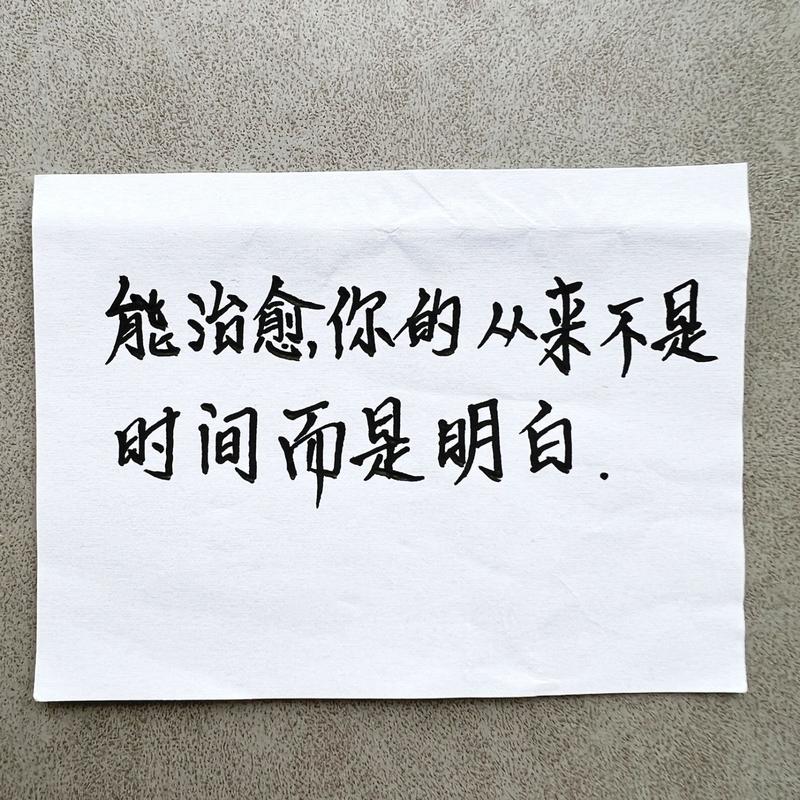 能治愈你的从来不是
时间而是明白.